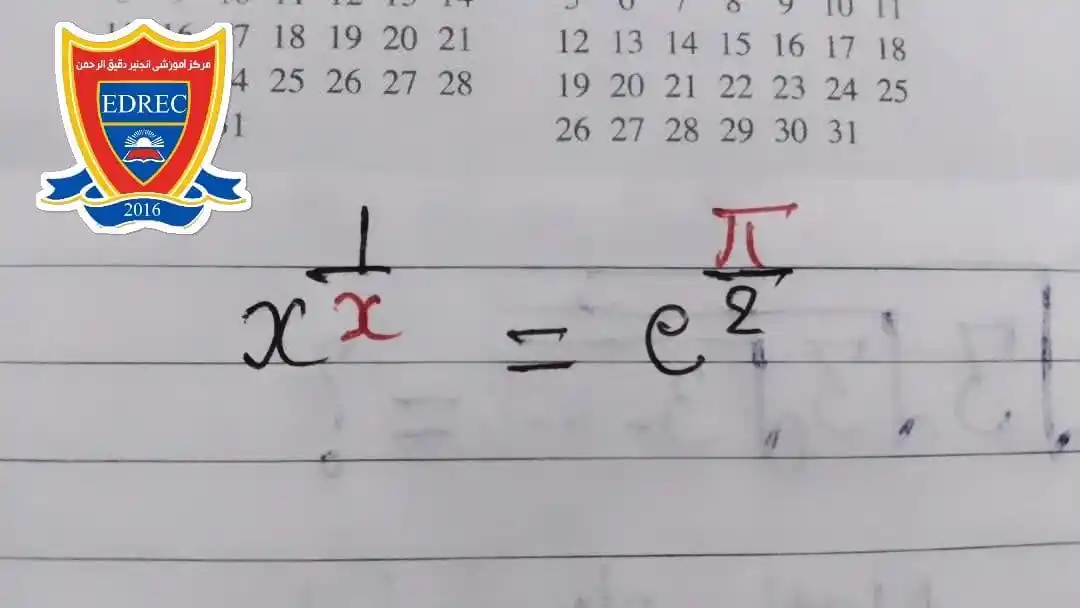 18 19 20 21
25 26 27 28
12 13 14 15 16 17 18
19 20 21 22 23 24 25
26 27 28 29 30 31
مرکز آموزشی انجنیر دقیق الرحمن
EDREC
2016
x^(1/x) = e^(π/2)